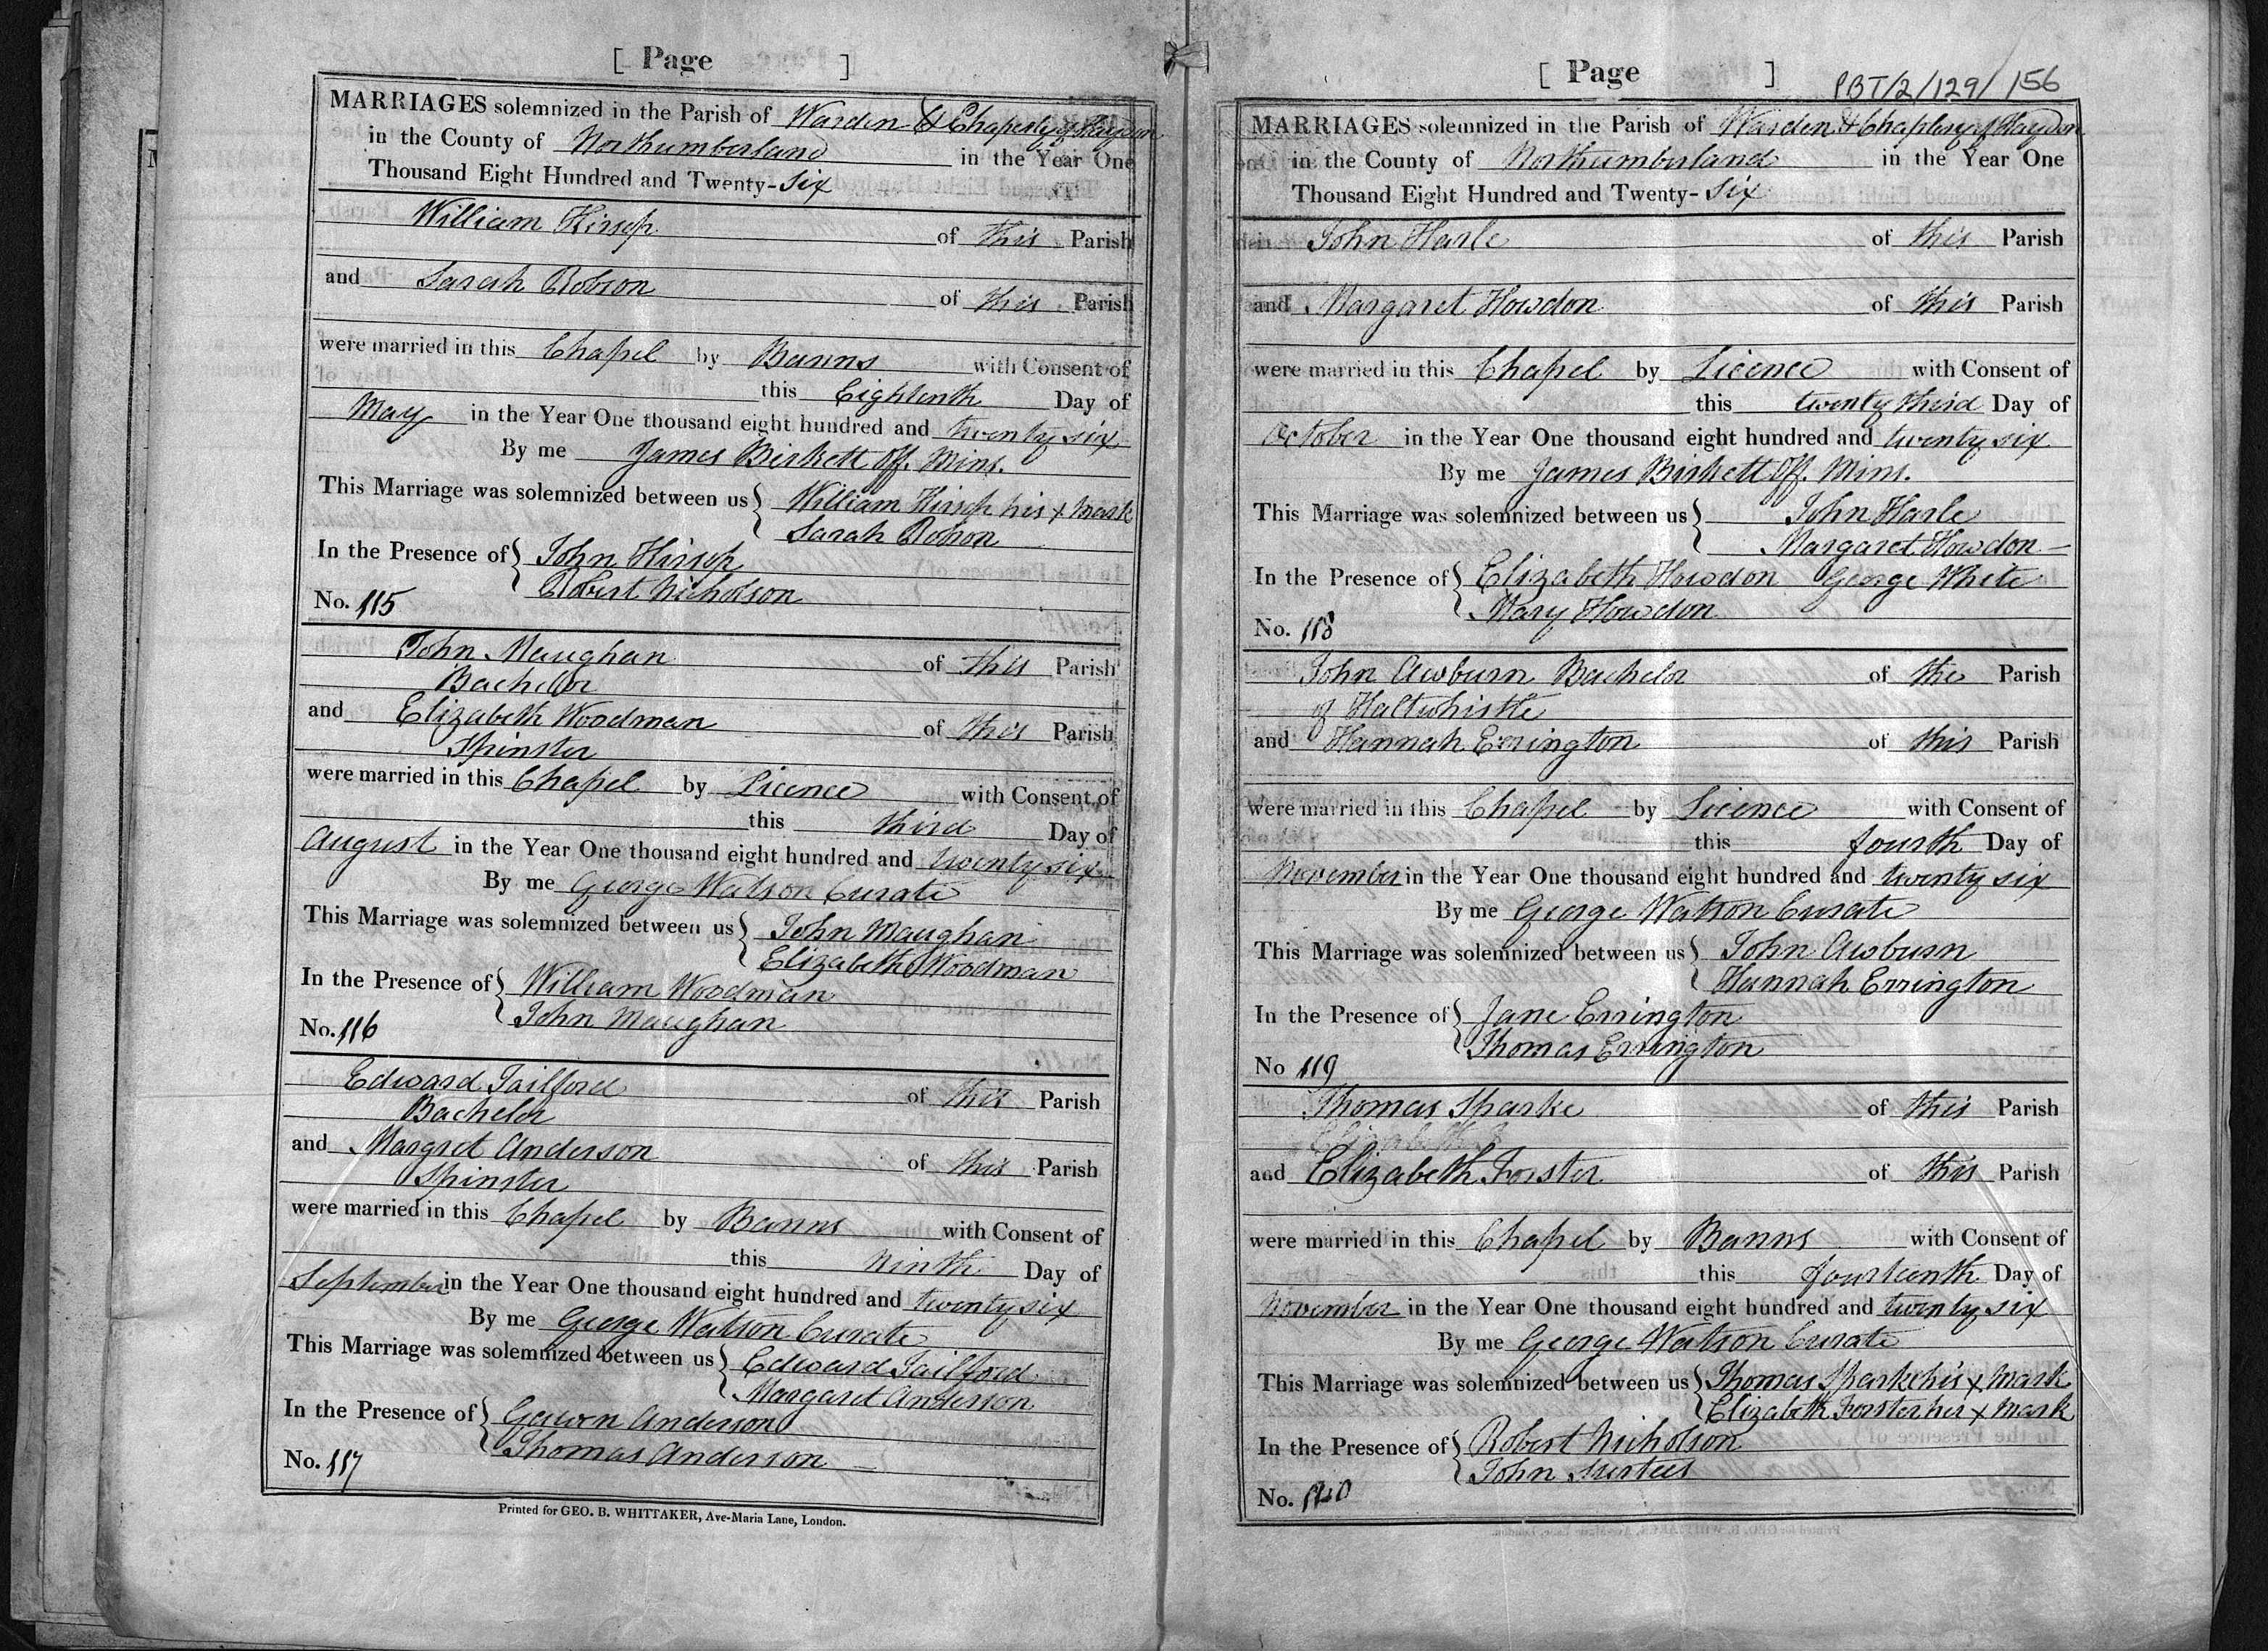 [ Page ]
MARRIAGES solemnized in the Parish of Warden & Chapelry of Haydon
in the County of Northumberland in the Year One
Thousand Eight Hundred and Twenty-Six
William Hirsop of this Parish
and Sarah Robson of this Parish
were married in this Chapel by Banns with Consent of
this Eighteenth Day of
May in the Year One thousand eight hundred and twenty six
By me James Birkett Off. Mins.
This Marriage was solemnized between us } William Hirsop his x mark
Sarah Robson
In the Presence of } John Hirsop
Robert Nicholson
No. 115
John Maughan of this Parish
Bachelor
and Elizabeth Woodman of this Parish
Spinster
were married in this Chapel by Licence with Consent of
this third Day of
August in the Year One thousand eight hundred and twenty six
By me George Watson Curate
This Marriage was solemnized between us } John Maughan
Elizabeth Woodman
In the Presence of } William Woodman
John Maughan
No. 116
Edward Tailford of this Parish
Bachelor
and Margret Anderson of this Parish
Spinster
were married in this Chapel by Banns with Consent of
this Ninth Day of
September in the Year One thousand eight hundred and twenty six
By me George Watson Curate
This Marriage was solemnized between us } Edward Tailford
Margaret Anderson
In the Presence of } Gawen Anderson
Thomas Anderson
No. 117
Printed for GEO. B. WHITTAKER, Ave-Maria Lane, London.
[ Page ] PBT/2/129/156
MARRIAGES solemnized in the Parish of Warden & Chaplery of Haydon
in the County of Northumberland in the Year One
Thousand Eight Hundred and Twenty-Six
John Harle of this Parish
and Margaret Howdon of this Parish
were married in this Chapel by Licence with Consent of
this twenty third Day of
October in the Year One thousand eight hundred and twenty six
By me James Birkett Off. Mins.
This Marriage was solemnized between us } John Harle
Margaret Howdon
In the Presence of } Elizabeth Howdon George White
Mary Howdon
No. 118
John Awburn Bachelor of the Parish
of Haltwhistle
and Hannah Errington of this Parish
were married in this Chapel by Licence with Consent of
this fourth Day of
November in the Year One thousand eight hundred and twenty six
By me George Watson Curate
This Marriage was solemnized between us } John Awburn
Hannah Errington
In the Presence of } Jane Errington
Thomas Errington
No 119
Thomas Sparke of this Parish
Elizabeth
and Elizabeth Forster of this Parish
were married in this Chapel by Banns with Consent of
this fourteenth Day of
November in the Year One thousand eight hundred and twenty six
By me George Watson Curate
This Marriage was solemnized between us } Thomas Sparke his x mark
Elizabeth Forster her x mark
In the Presence of } Robert Nicholson
John Surtees
No. 120